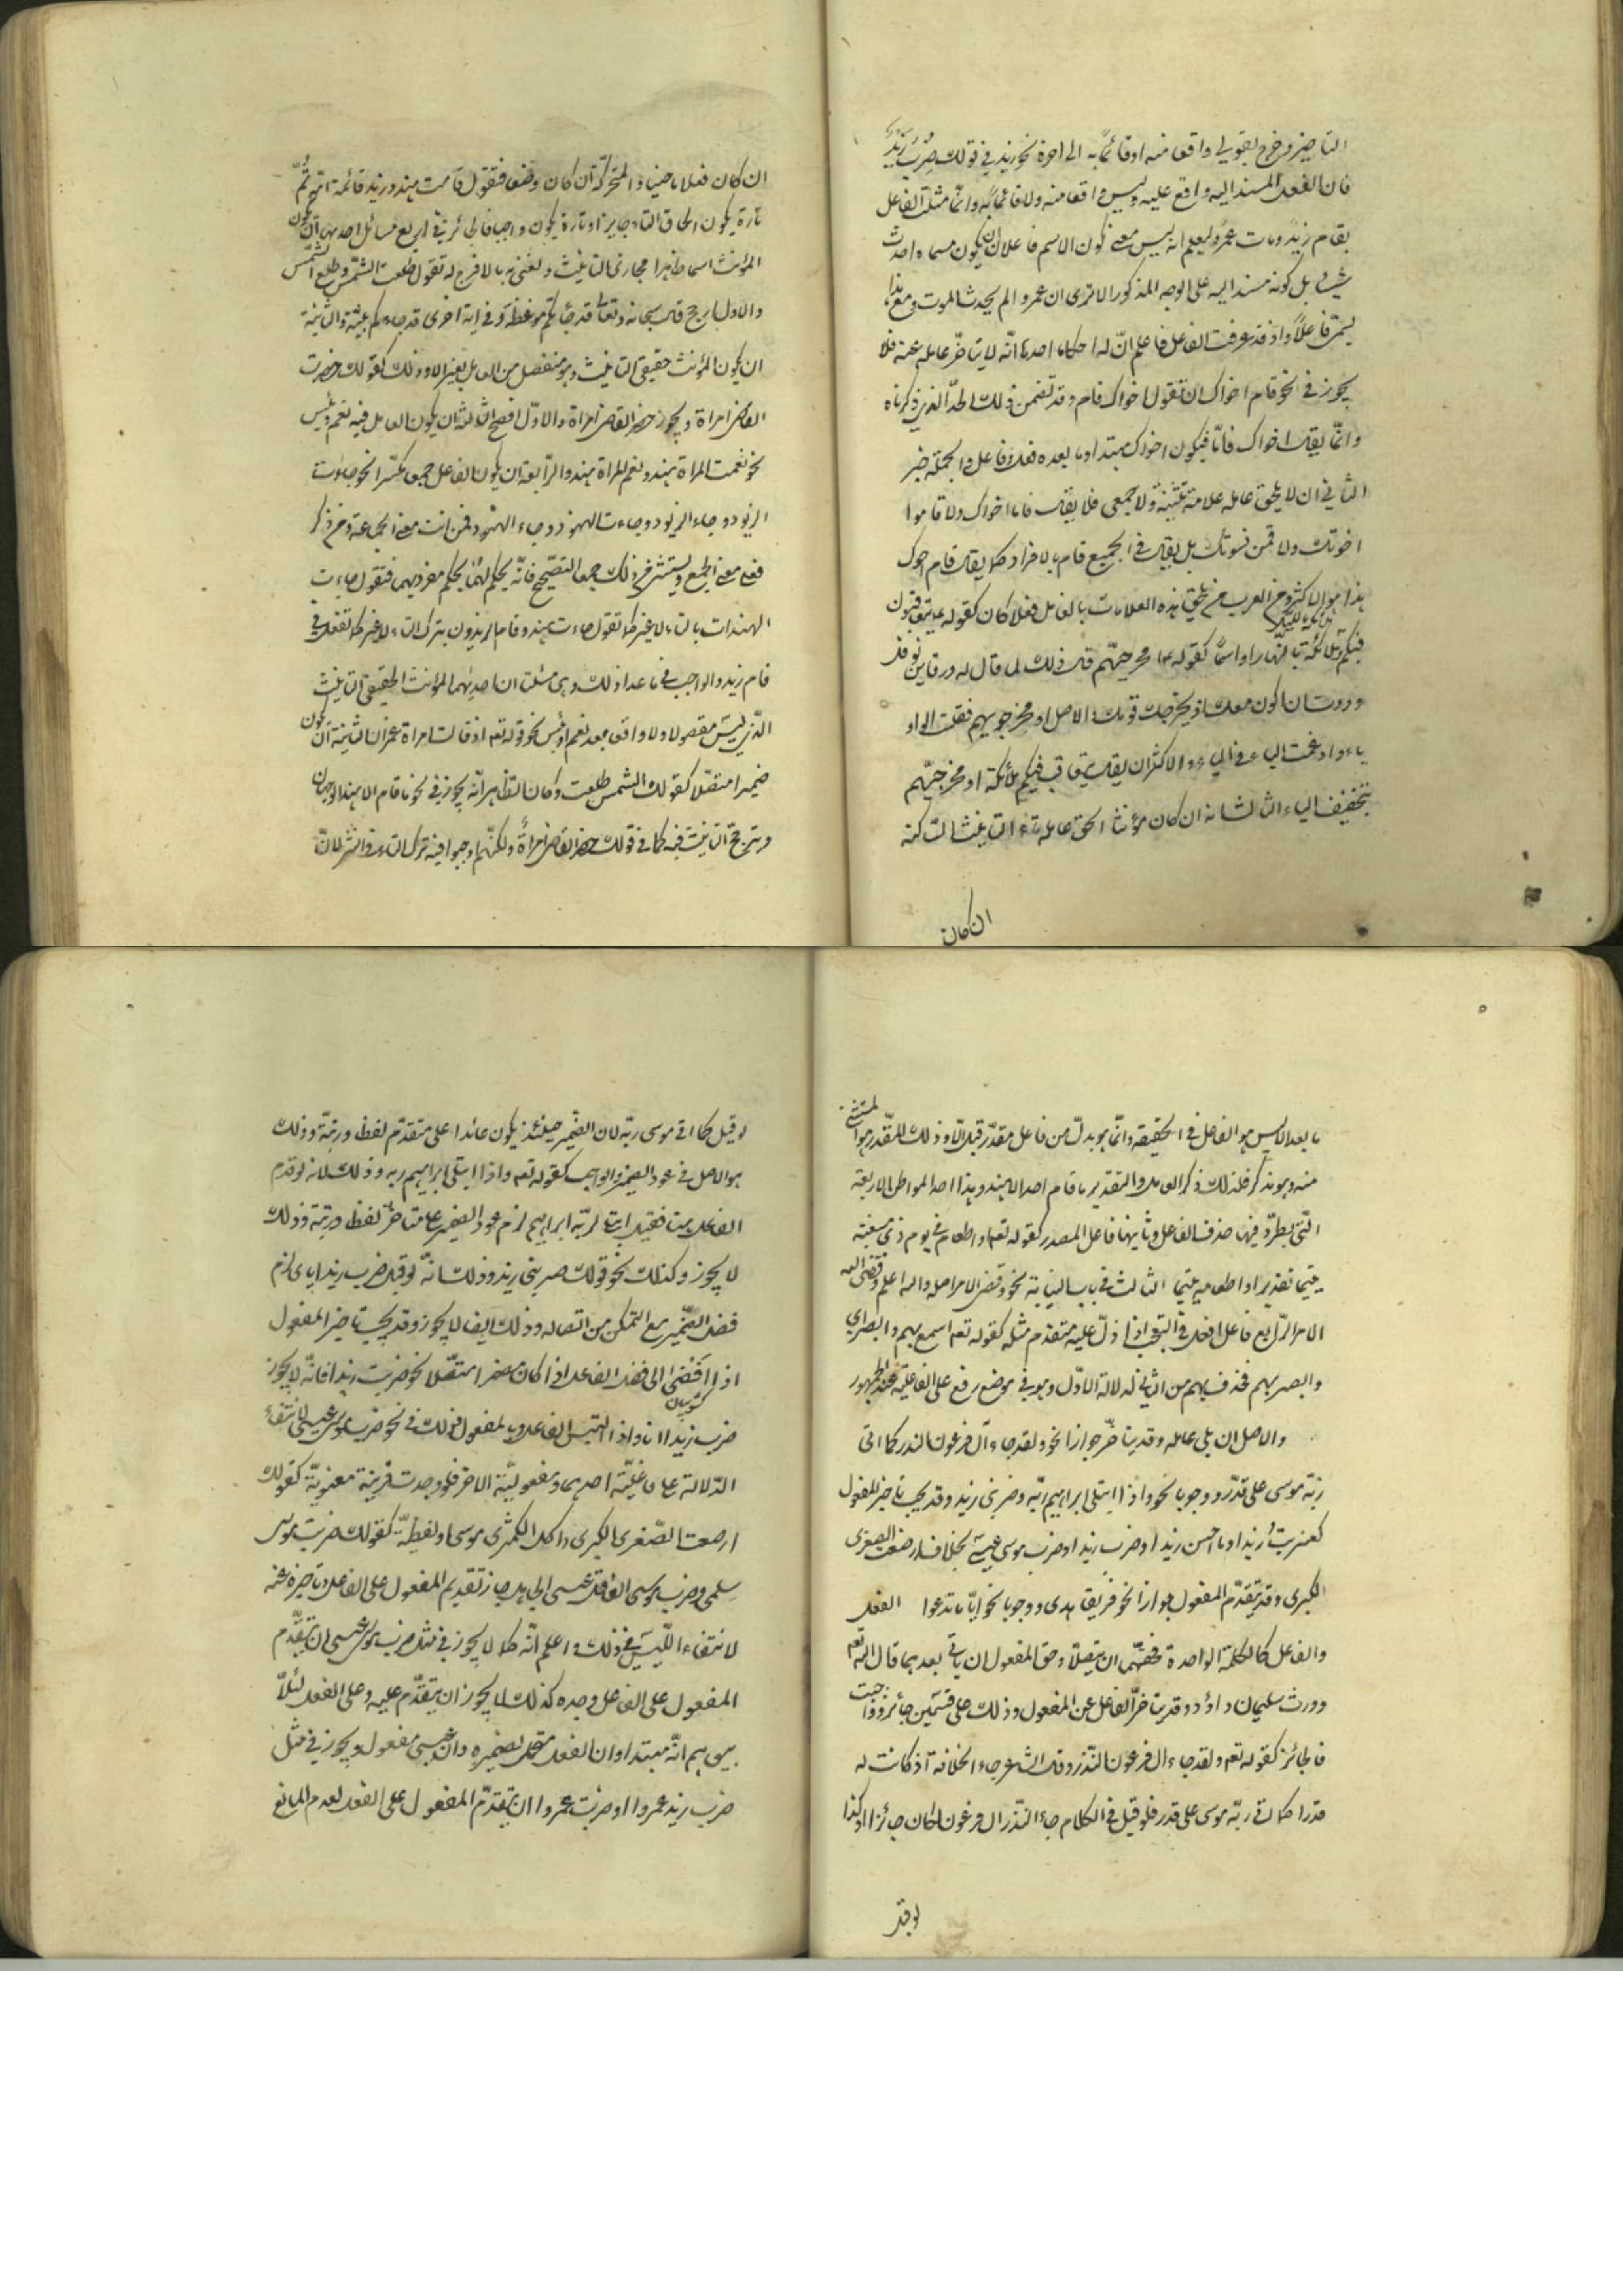 التاخير وخرج بقولي واقعا منه او قائما به الى اخره نحو زيد في قولك ضُرب زيدٌ
فان الفعل المسند اليه واقع عليه وليس واقعا منه ولا قائما به وانما مثلت الفاعل
بقام زيد ومات عمرو ليعلم انه ليس معنى كون الاسم فاعلا ان يكون مسماه احدث
شيئا بل كونه مسندا اليه على الوجه المذكور الا ترى ان عمروا لم يحدث الموت ومع هذا
يسمى فاعلاً واذ قد عرفت الفاعل فاعلم انّ له احكاما احدها انّه لا يتاخّر عامله عنه فلا
يجوز في نحو قام اخواك ان تقول اخواك قام وقد تضمن ذلك الحدّ الذي ذكرناه
وانّما يقال اخواك قاما فيكون اخواك مبتدا وما بعده فعل وفاعل والجملة خبر
الثاني ان لا يلحق عامله علامة تثنية ولا جمع فلا يقال قاما اخواك ولا قاموا
اخوتك ولا قمن نسوتك بل يقال في الجميع قام بالافراد كما يقال قام اخوك
هذا هو الاكثر ومن العرب من يلحق هذه العلامات بالعامل فعلا كان كقوله ع يتعاقبون
فيكم ملائكة بالليل وملائكة بالنهار او اسما كقوله ع او مخرجيّ هم قال ذلك لما قال له ورقة بن نوفل
وددت ان اكون معك اذ يخرجك قومك والاصل او مخرجوي هم فقلبت الواو
ياء وادغمت الياء في الياء والاكثر ان يقال يتعاقب فيكم ملائكة او مخرجيّ هم
بتخفيف الياء الثالث انه ان كان مؤنثا الحق عامله تاء التانيث الساكنة
ان كان
ان كان فعلا ماضيا والمتحركة ان كان وصفا فتقول قامت هند وزيد قائمة امّه ثمّ
تارة يكون الحاق التاء جايزا وتارة يكون واجبا فالجائز في اربع مسائل احديها ان يكون
المؤنث اسما ظاهرا مجازى التانيث ونعني به ما لا فرج له تقول طلعت الشمس وطلع الشمس
والاول ارجح قال سبحانه وتعالى قد جائتكم موعظة وفي اية اخرى قد جاءكم بينة والثانية
ان يكون المؤنث حقيقي التانيث وهو منفصل من العامل بغير الا وذلك كقولك حضرت
القاضى امراة ويجوز حضر القاضى امراة والاوّل افصح الثالثة ان يكون العامل فيه نعم وبئس
نحو نعمت المراة هند ونعم المراة هند والرّابعة ان يكون الفاعل جمعا مكسّرا نحو جاءت
الزيود وجاء الزيود وجاءت الهنود وجاء الهنود فمن انث فعلى معنى الجماعة ومن ذكر
فعلى معنى الجمع ويستثنى من ذلك جمعا التصحيح فانّه يحكم لهما بحكم مفرديهما فتقول جاءت
الهندات بالتاء لا غير كما تقول جاءت هند وقام الزيدون بترك التاء لا غير كما تفعل في
قام زيد والواجب في ما عدا ذلك وهي مسئلتان احديهما المؤنث الحقيقي التانيث
الذي ليس مفصولا ولا واقعا بعد نعم او بئس نحو قوله تعه اذ قالت امراة عمران الثانية ان يكون
ضميرا متصلا كقولك الشمس طلعت وكان الظاهر انّه يجوز في نحو ما قام الا هند الوجهان
ويترجح التانيث فيه كما في قولك حضر القاضى امراةٌ ولكنّهم اوجبوا فيه ترك التاء في النثر لانّ
ما بعد الا ليس هو الفاعل في الحقيقه وانّما هو بدل من فاعل مقدّر قبل الّا وذلك المقدر هو المستثنى
منه وهو مذكر فلذلك ذكر العامل والتقدير ما قام احد الا هند وهذا احد المواطن الاربعة
الّتي يطّرد فيها حذف الفاعل وثانيها فاعل المصدر كقوله تعه او اطعام في يوم ذي مسغبة
يتيما تقديره او اطعامه يتيما الثالث في باب النيابة نحو وقضى الامر اصله والله اعلم وقضى الله
الامر الرّابع فاعل افعل في التعجب اذا دلّ عليه متقدم مثله كقوله تعه اسمع بهم وابصر اي
وابصر بهم فحذف بهم من الثاني لدلالة الاوّل وهو في موضع رفع على الفاعلية عند الجمهور
والاصل ان يلي عامله وقد يتاخّر جوازا نحو ولقد جاء آل فرعون النذر كما اتى
ربّه موسى على قدر ووجوبا نحو واذ ابتلى ابراهيم ربّه وضربني زيد وقد يجب تاخير المفعول
كضربت زيدا وما احسن زيدا وضرب زيدا او ضرب موسى عيسى بخلاف ارضعت الصغرى
الكبرى وقد يتقدّم المفعول جوازا نحو فريقا هدى ووجوبا نحو ايّا ما تدعوا الفعل
والفاعل كالكلمة الواحدة فحقهما ان يتصلا وحق المفعول ان ياتي بعدهما قال الله تعه
وورث سليمان داؤد وقد يتاخّر الفاعل عن المفعول وذلك على قسمين جائز وواجب
فالجائز كقوله تعه ولقد جاء ال فرعون النّذر وقال الشاعر جاء الخلافة اذ كانت له
قدرا كما اتى ربّه موسى على قدر فلو قيل في الكلام جاء النّذر ال فرعون لكان جائزا وكذا
لو قيل
لو قيل كما اتى موسى ربّه لان الضّمير حينئذ يكون عائدا على متقدّم لفظا ورتبة وذلك
هو الاصل في عود الضمير والواجب كقوله تعه واذا ابتلى ابراهيم ربه وذلك لانه لو قدم
الفاعل هنا فقيل ابتلى ربّه ابراهيم لزم عود الضمير على متاخّر لفظا ورتبة وذلك
لا يجوز وكذلك نحو قولك ضربني زيد وذلك انّه لو قيل ضرب زيد اياى لزم
فصل الضّمير مع التمكن من اتصاله وذلك ايضا لا يجوز وقد يجب تاخير المفعول
اذا افضى الى فصل الفاعل اذا كان مضمرا متصلا نحو ضربت زيدا فانّه لا يجوز
ضرب زيدا انا واذا التبس الفاعل بالمفعول فذلك في نحو ضرب موسى عيسى لانتفاء
الدّلالة على فاعليّة احدهما ومفعوليّة الاخر فلو وجدت قرينة معنويّة كقولك
ارضعت الصّغرى الكبرى واكل الكمّثرى موسى او لفظيّة كقولك ضربت موسى
سلمى وضرب موسى العاقل عيسى الجاهل جاز تقديم المفعول على الفاعل وتاخيره عنه
لانتفاء اللّبس في ذلك واعلم انّه كما لا يجوز في مثل ضرب موسى عيسى ان يتقدّم
المفعول على الفاعل وحده كذلك لا يجوز ان يتقدّم عليه وعلى الفعل لئلّا
يتوهم انّه مبتدا وان الفعل متحمل لضميره وان عيسى مفعول ويجوز في مثل
ضرب زيد عمروا او ضربت عمروا ان يتقدّم المفعول على الفعل لعدم المانع